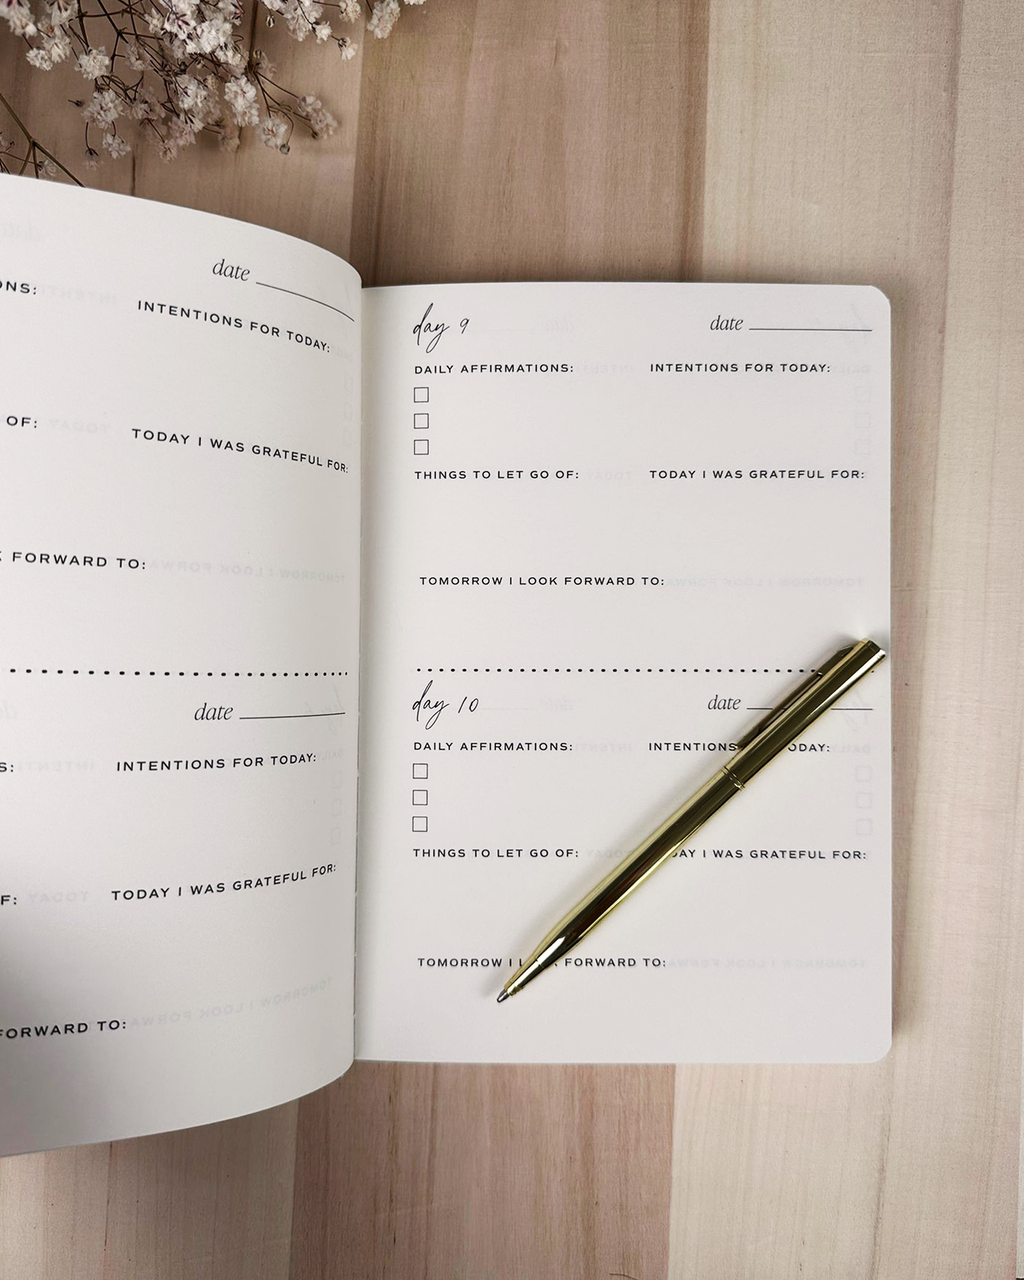 date
ONS: INTENTIONS FOR TODAY:
OF: TODAY I WAS GRATEFUL FOR:
FORWARD TO:
date
S: INTENTIONS FOR TODAY:
F: TODAY I WAS GRATEFUL FOR:
FORWARD TO:
day 9 date
DAILY AFFIRMATIONS: INTENTIONS FOR TODAY:
THINGS TO LET GO OF: TODAY I WAS GRATEFUL FOR:
TOMORROW I LOOK FORWARD TO:
day 10 date
DAILY AFFIRMATIONS: INTENTIONS ODAY:
THINGS TO LET GO OF: DAY I WAS GRATEFUL FOR:
TOMORROW I L FORWARD TO: